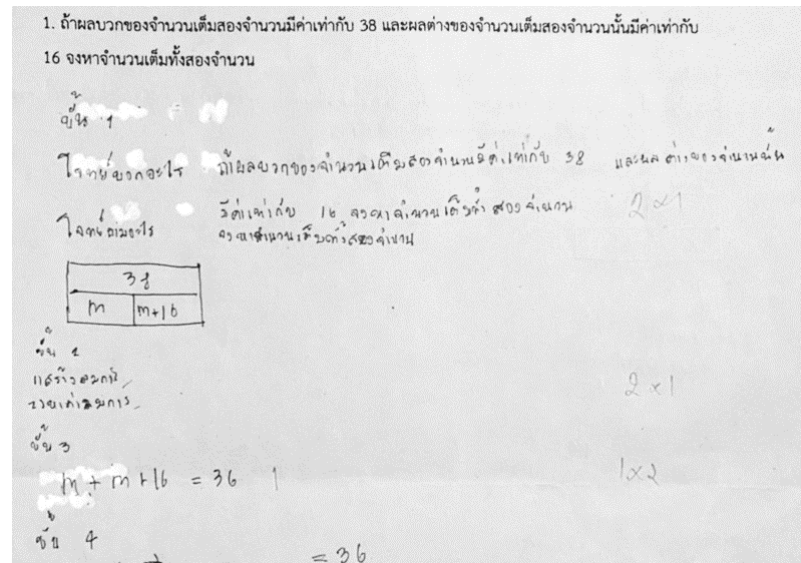 1. ถ้าผลบวกของจำนวนเต็มสองจำนวนมีค่าเท่ากับ 38 และผลต่างของจำนวนเต็มสองจำนวนนั้นมีค่าเท่ากับ
16 จงหาจำนวนเต็มทั้งสองจำนวน
ขั้น 1
โจทย์บอกอะไร ถ้าผลบวกของจำนวนเต็มสองจำนวนมีค่าเท่ากับ 38 และผลต่างของจำนวนนั้น
มีค่าเท่ากับ 16 จงหาจำนวนเต็มทั้งสองจำนวน 2×1
โจทย์ถามอะไร จงหาจำนวนเต็มทั้งสองจำนวน
38
m m+16
ขั้น 2
2×1
ขั้น 3
m + m + 16 = 36 1 1×2
ขั้น 4
= 36